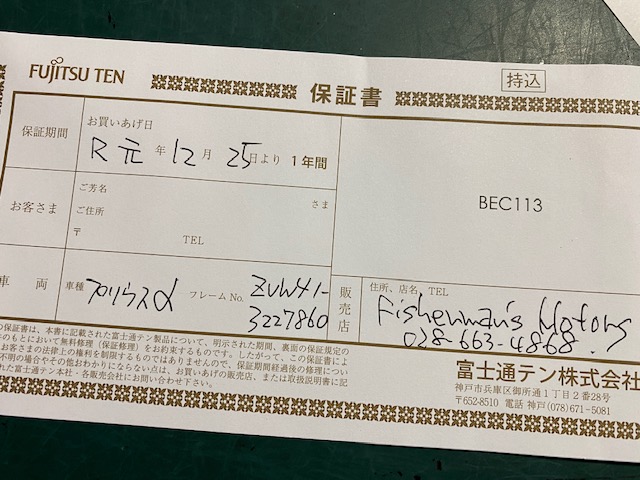 FUJITSU TEN
保証書
持込
保証期間
お買いあげ日
R元年12月25日より1年間
BEC113
お客さま
ご芳名
さま
ご住所
〒
TEL
車両
車種
プリウスα
フレームNo.
ZVW41-
3227860
販売店
住所、店名、TEL
Fisherman's Motors
028-663-4868.
の保証書は、本書に記載された富士通テン製品について、明示された期間、裏面の保証規定の
件のもとにおいて無料修理(保証修理)をお約束するものです。したがって、この保証書によ
お客さまの法律上の権利を制限するものではありませんので、保証期間経過後の修理につい
不明の場合やその他おわかりにならない点は、お買いあげの販売店、または取扱説明書に記
た富士通テン本社・各販売会社にお問い合わせ下さい。
富士通テン株式会社
神戸市兵庫区御所通1丁目2番28号
〒652-8510 電話 神戸(078)671-5081